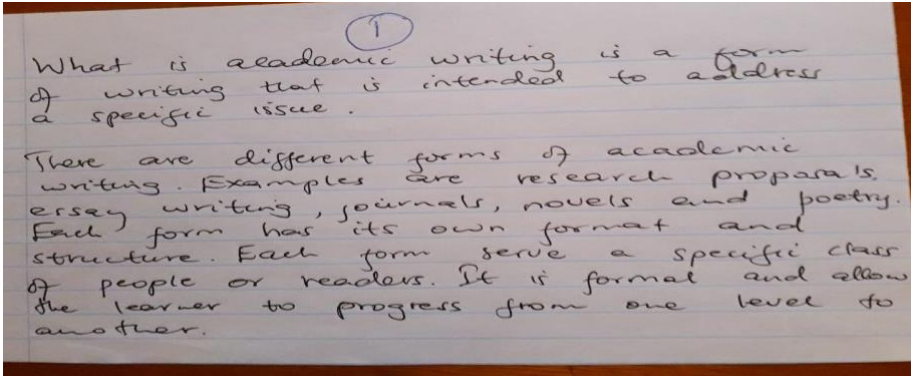 1
What is academic writing is a form
of writing that is intended to address
a specific issue.
There are different forms of academic
writing. Examples are research proposals,
essay writing, journals, novels and poetry.
Each form has its own format and
structure. Each form serve a specific class
of people or readers. It is formal and allow
the learner to progress from one level to
another.